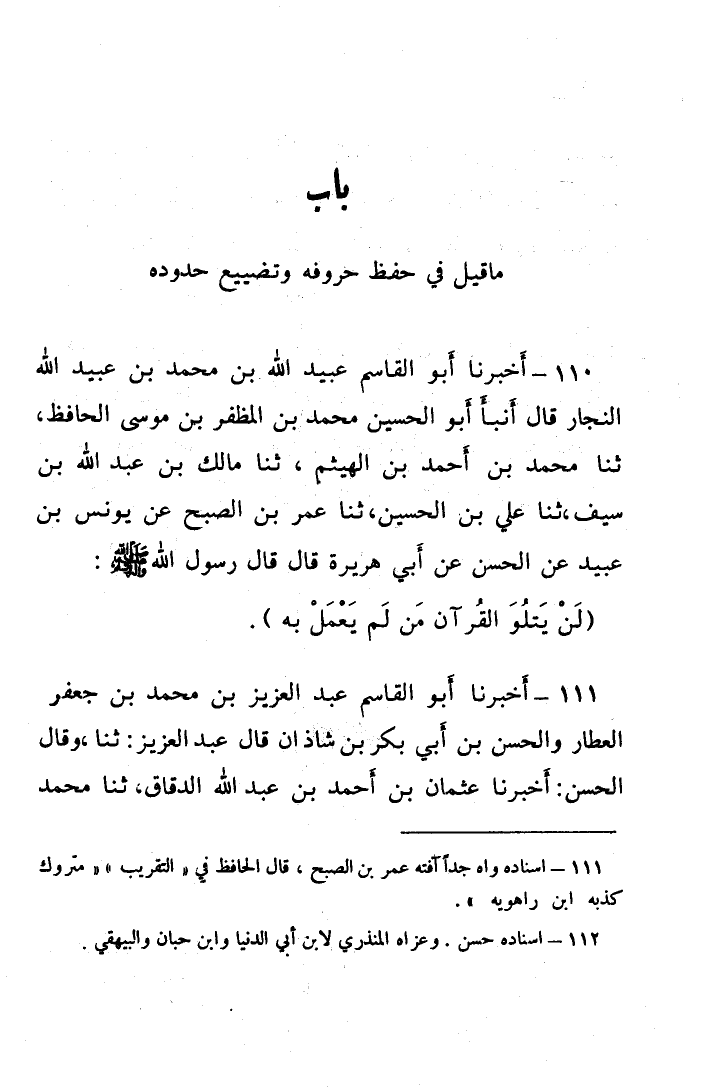 باب
ماقيل في حفظ حروفه وتضييع حدوده
١١٠ – أَخبرنا أَبو القاسم عبيد الله بن محمد بن عبيد الله
النجار قال أَنبأَ أَبو الحسين محمد بن المظفر بن موسى الحافظ،
ثنا محمد بن أَحمد بن الهيثم ، ثنا مالك بن عبد الله بن
سيف،ثنا علي بن الحسين،ثنا عمر بن الصبح عن يونس بن
عبيد عن الحسن عن أَبي هريرة قال قال رسول الله ﷺ :
(لَنْ يَتلُوَ القُرآن مَن لَم يَعْمَلْ به ) .
١١١ – أَخبرنا أَبو القاسم عبد العزيز بن محمد بن جعفر
العطار والحسن بن أَبي بكر بن شاذان قال عبد العزيز : ثنا ،وقال
الحسن: أَخبرنا عثمان بن أَحمد بن عبد الله الدقاق، ثنا محمد
١١١ – اسناده واه جداً آفته عمر بن الصبح ، قال الحافظ في « التقريب » « متروك
كذبه ابن راهويه » .
١١٢ – اسناده حسن . وعزاه المنذري لابن أبي الدنيا وابن حبان والبيهقي .